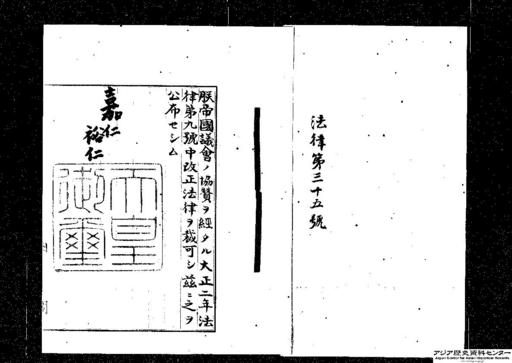 法律第三十五號
朕帝國議會ノ協賛ヲ經タル大正二年法
律第九號中改正法律ヲ裁可シ茲ニ之ヲ
公布セシム
嘉仁
裕仁
天皇
御璽
アジア歴史資料センター
Japan Center for Asian Historical Records